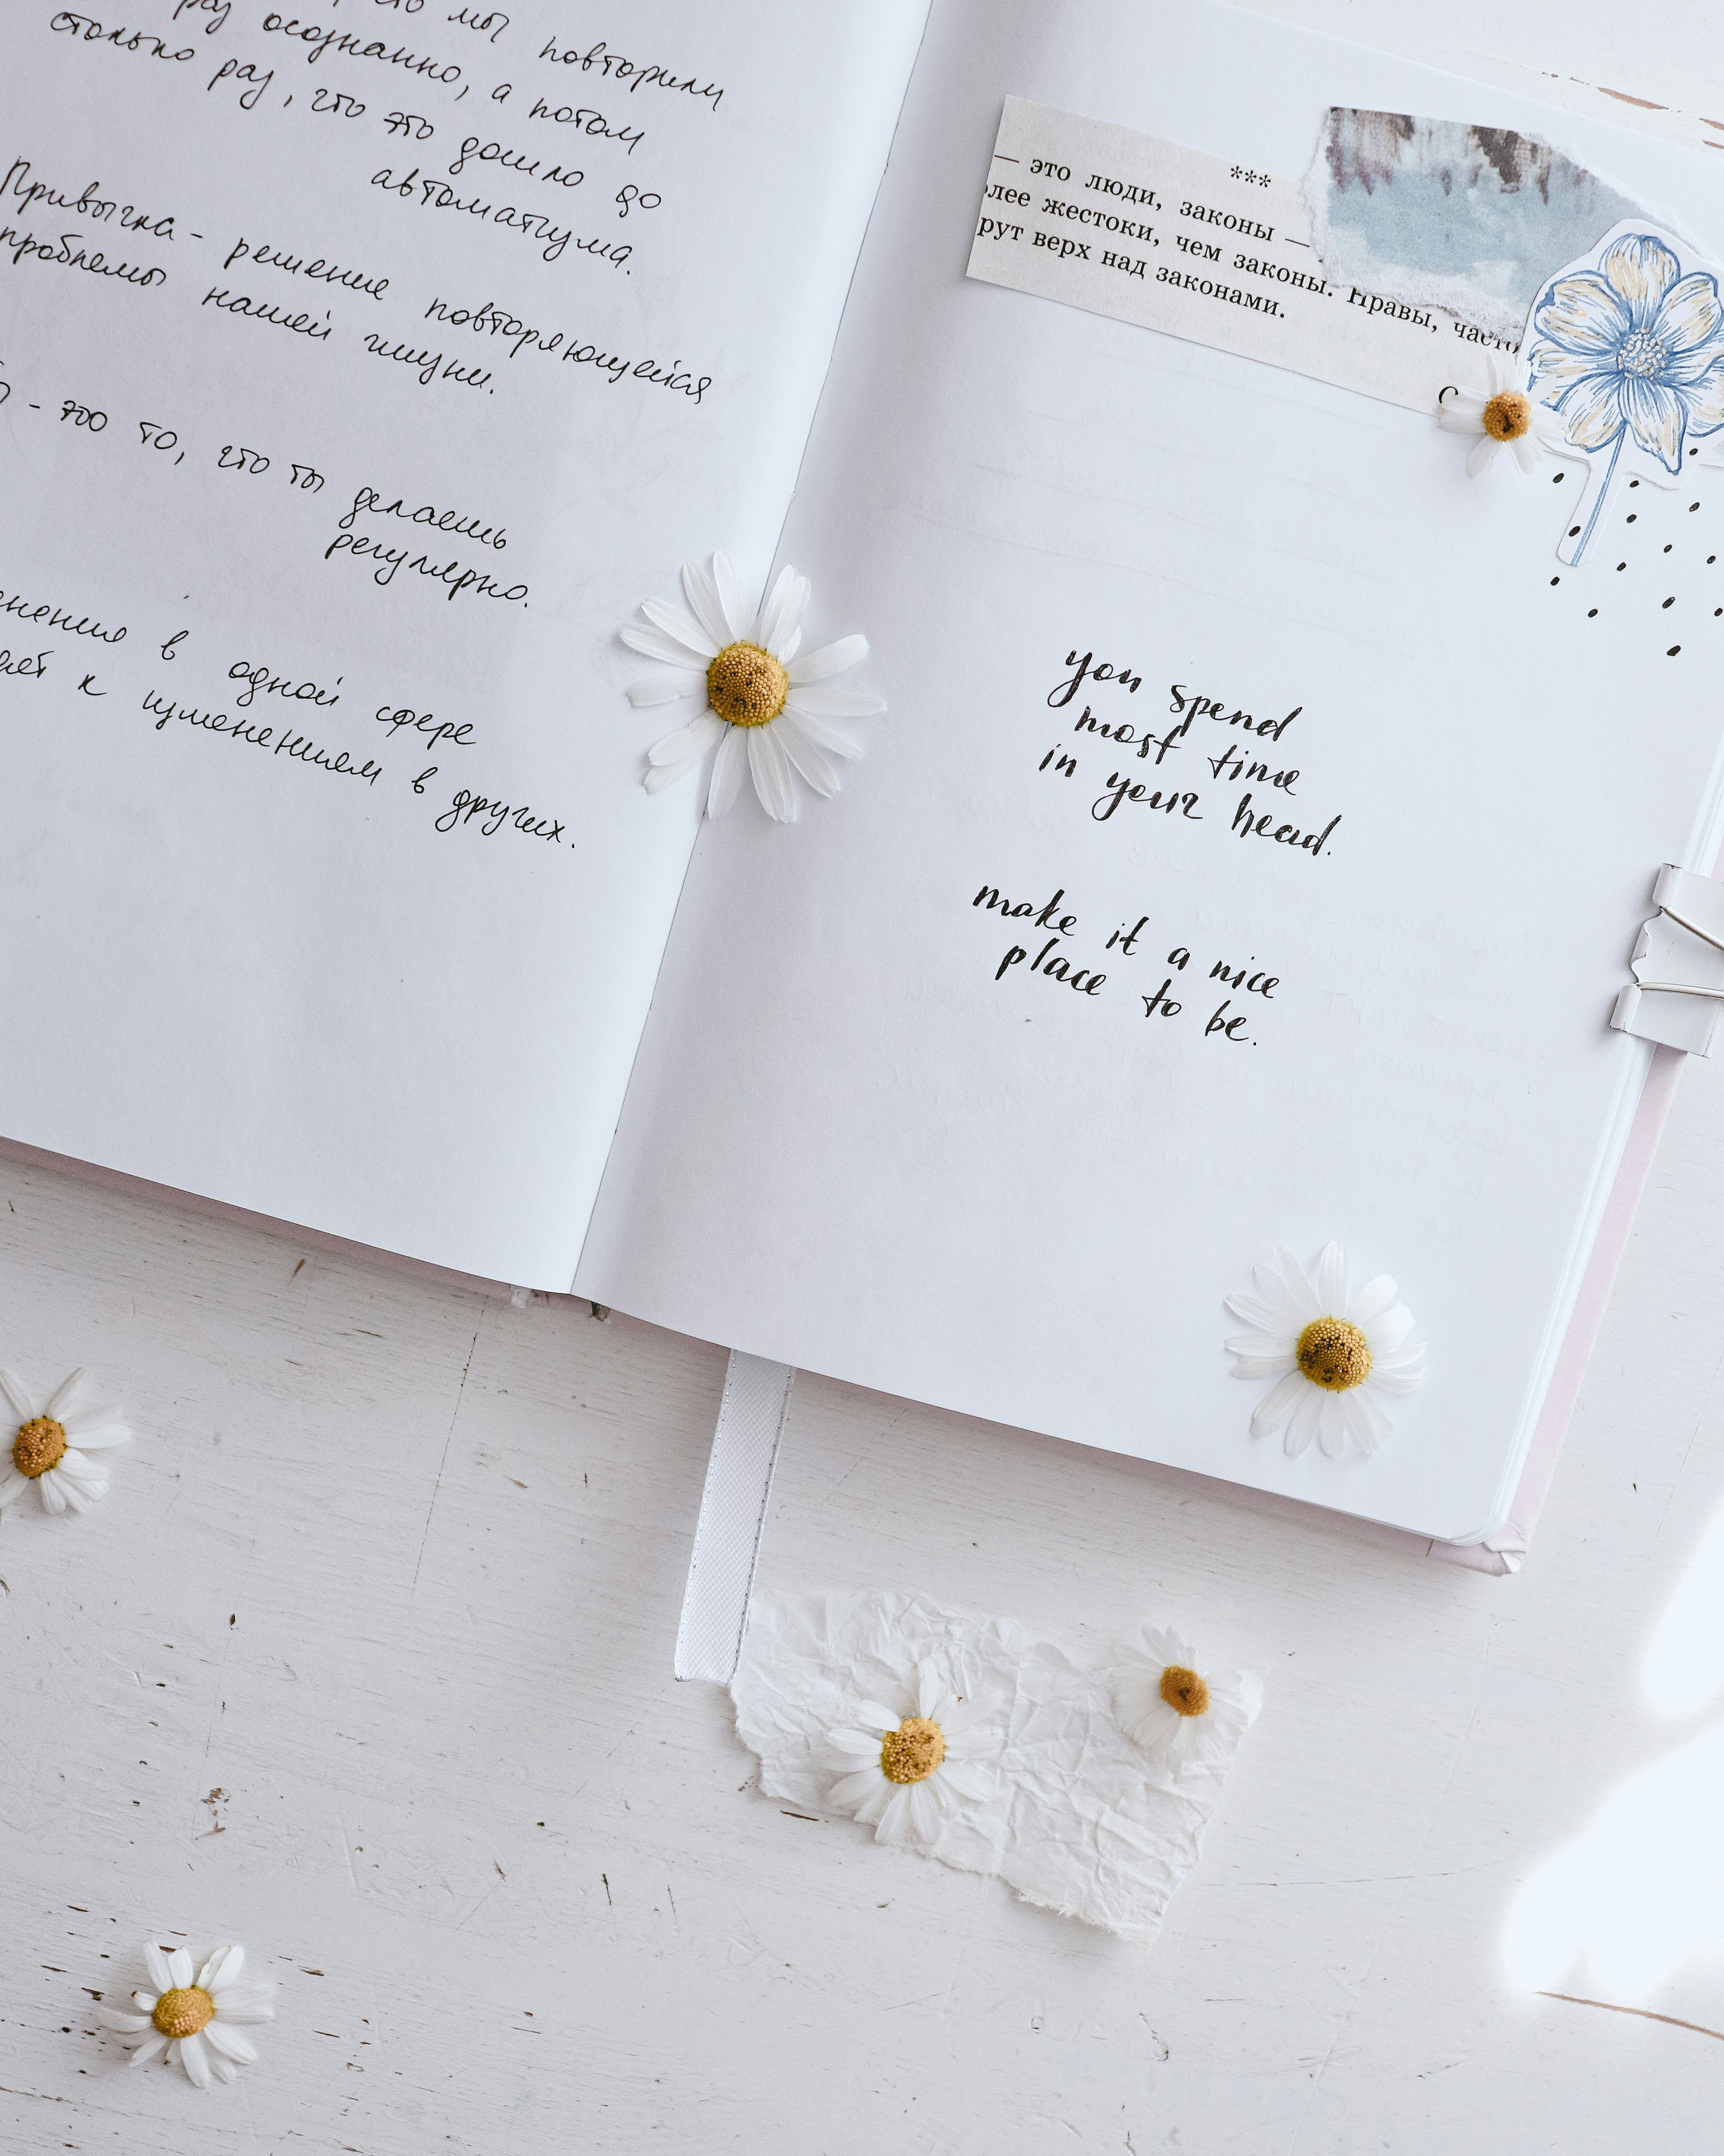 мы повторили
осознанно, а потом
столько раз, что это дошло до
автоматизма.
Привычка - решение повторяющейся
проблемы нашей жизни.
- это то, что ты делаешь
регулярно.
в одной сфере
к изменениям в других.
***
— это люди, законы —
жестоки, чем законы. Нравы, часто
верх над законами.
you spend
most time
in your head.
make it a nice
place to be.